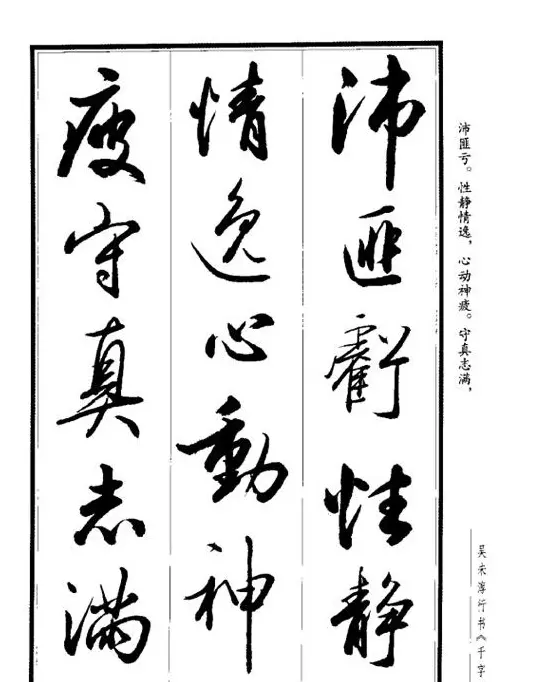 沛匪虧性静
情逸心動神
疲守真志满
沛匪亏。性静情逸，心动神疲。守真志满，
吴未淳行书《千字